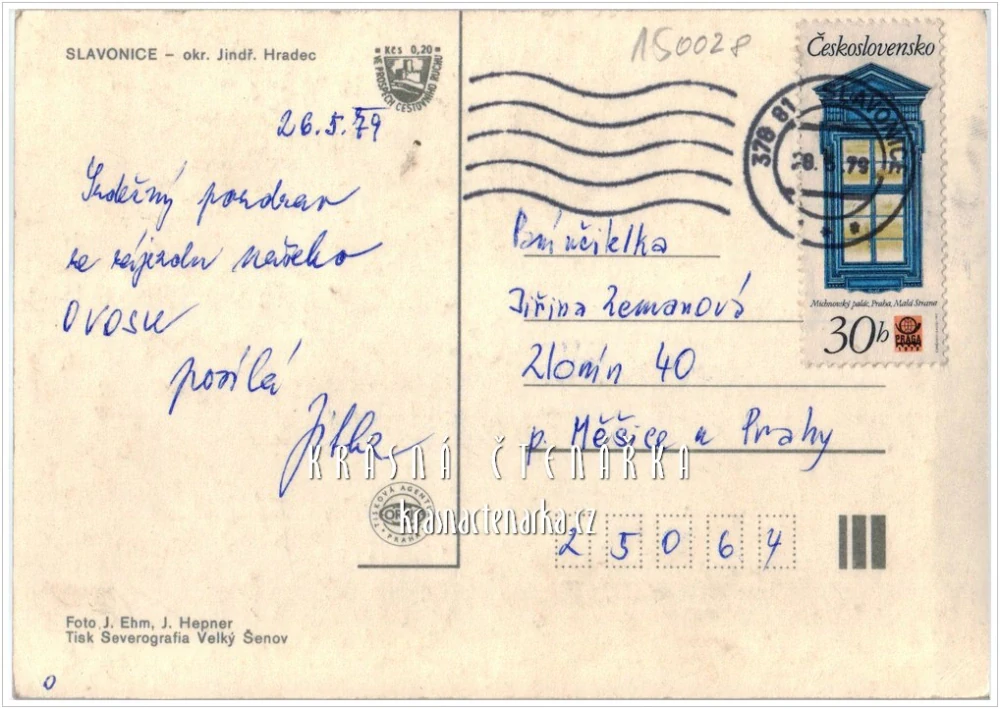 SLAVONICE – okr. Jindř. Hradec
Kčs 0,20
VE PROSPĚCH CESTOVNÍHO RUCHU
150028
Československo
378 81 SLAVONICE
28. 5. 79
Michnovský palác, Praha, Malá Strana
30h
PRAGA
1978
26. 5. 79
Srdečný pozdrav
ze zájezdu našeho
OVOSu
posílá
Jitka
Paní učitelka
Jiřina Zemanová
Zlonín 40
p. Měšice u Prahy
KRÁSNÁ ČTENÁRKA
krasnactenarka.cz
TISKOVÁ AGENTURA
ORBIS
PRAHA
25064
Foto J. Ehm, J. Hepner
Tisk Severografia Velký Šenov